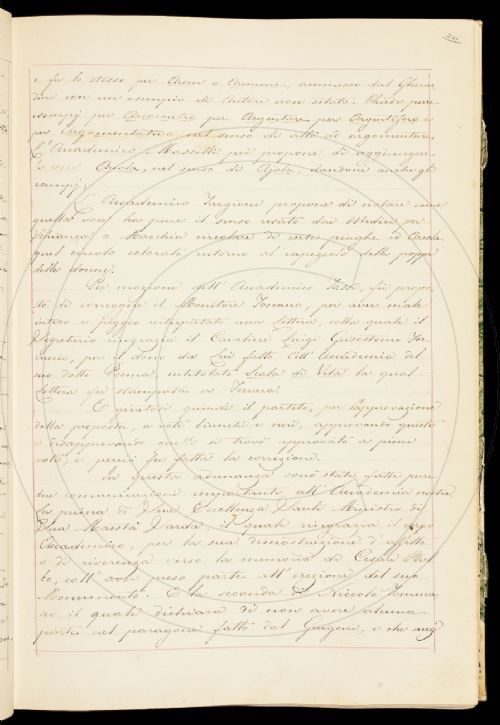 e fa lo stesso per Acem o Acemine, ammesso dal Gherar
dini con un esempio di Autore non citato: Chiede pure
esempj per Areometro per Argentare per Argentifero e
per Argomentativo nel senso di atto ad argomentare.
L'Accademico Massetti poi propone di aggiungere
la voce Ajola, nel senso di Ajola, dandone anche gli
esempj.
L'Accademico Targioni propone di notare come
questa voce ha pure il senso usato dai Medici per
e Macchia circolare di certe piaghe ed Areola
quel circolo colorato intorno al capezzolo delle poppe
delle donne.
Per mozione dell'Accademico fu propo
sto di correggere il Monitore Toscano, per aver male
inteso e peggio interpretato una lettera, colla quale il
Segretario ringrazia il Cavaliere Luigi Grisostomo Fer
ruccio, per il dono da Lui fatto all'Accademia del
suo dotto Poema, intitolato Scala di Vita la qual
lettera fu stampata a Ferrara.
E giratosi quindi il partito, per l'approvazione
della proposta, a voti bianchi e neri, approvando questi
e disapprovando quelli si trovò approvato a pieni
voti, e perciò fu fatta la correzione.
In questa adunanza sono state fatte pure
due comunicazioni importanti all'Accademia nostra
La prima di Sua Eccellenza Ministro di
Sua Maestà Sarda il quale ringrazia il corpo
Accademico, per la sua dimostrazione d'affetto
e di riverenza verso la memoria di Cesare Bal
bo, coll'aver preso parte all'erezione del suo
Monumento: E la seconda di Niccolò Tomma
seo, il quale dichiara di non avere alcuna
parte nel paragone fatto dal e che anzi